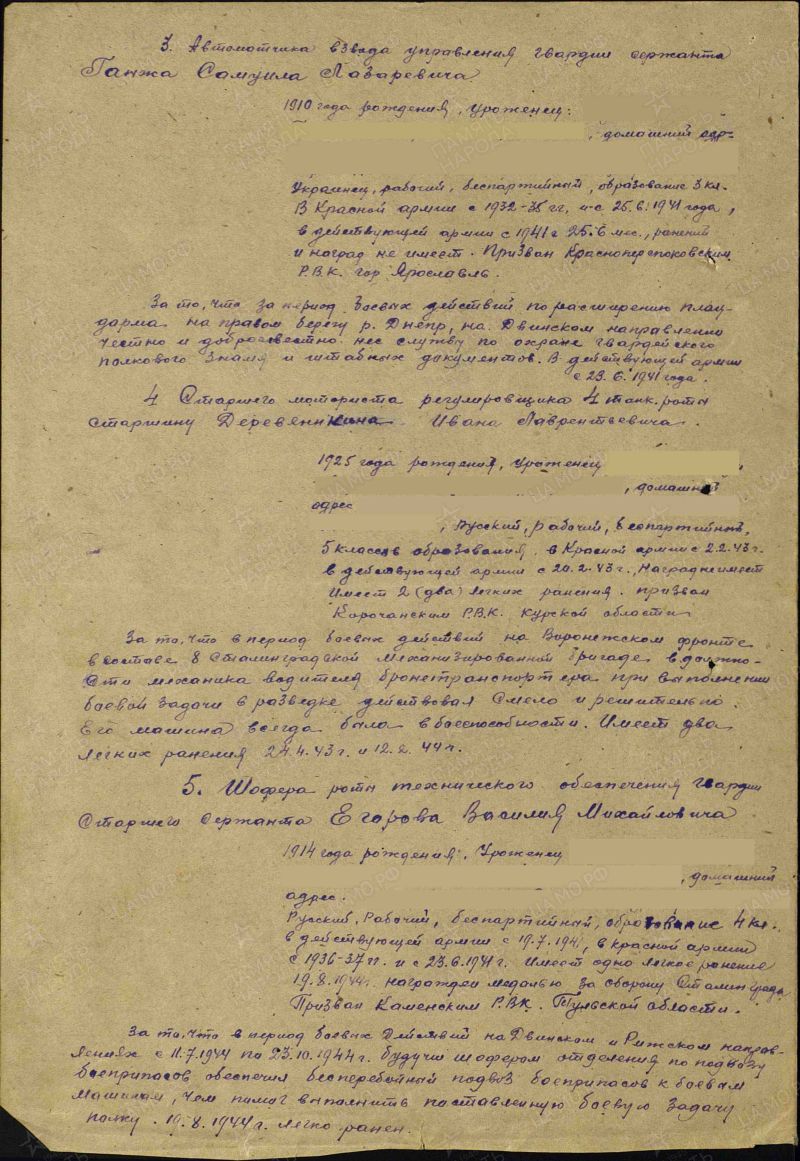 3. Автоматчика взвода управления гвардии сержанта
Ганжа Самуила Лазаревича
1910 года рождения, уроженец:
, домашний адр-
Украинец, рабочий, беспартийный, образование 3 кл.
В Красной армии с 1932-35 гг, и с 25.6.1941 года,
в действующей армии с 1941 г 25.6 мес., ранений
и наград не имеет. Призван Красноперекоповским
Р.В.К. гор Ярославль.
За то, что за период боевых действий по расширению плац-
дарма на правом берегу р. Днепр, на Двинском направлении
честно и добросовестно нес службу по охране гвардейского
полкового знамя и штабных документов. В действующей армии
с 23.6.1941 года.
4 Старшего моториста регулировщика 4 танк. роты
старшину Деревянкина Ивана Лаврентьевича.
1925 года рождения, уроженец
, домашний
адрес
, Русский, рабочий, беспартийный,
5 классов образования, в Красной армии с 2.2.43 г.
в действующей армии с 20.2.43 г., Наград не имеет
Имеет 2 (два) легких ранения. призван
Корочанским Р.В.К. Курской области
За то, что в период боевых действий на Воронежском фронте
в составе 8 Сталинградской механизированной бригаде в должно-
сти механика водителя бронетранспортера при выполнении
боевой задачи в разведке действовал смело и решительно.
Его машина всегда была в боеспособности. Имеет два
легких ранения 24.4.43 г. и 12.2.44 г.
5. Шофера роты технического обеспечения гвардии
старшего сержанта Егорова Василия Михайловича
1914 года рождения. Уроженец
, домашний
адрес.
Русский, Рабочий, беспартийный, образование 4 кл.
в действующей армии с 19.7.1941, в красной армии
с 1936-37 гг. и с 23.6.1941 г. Имеет одно легкое ранение
19.8.1944г. награжден медалью за оборону Сталинграда
Призван Каменским Р.В.К. Тульской области.
За то, что в период боевых действий на Двинском и Рижском направ-
лениях с 11.7.1944 по 23.10.1944 г. будучи шофером отделения по подвозу
боеприпасов обеспечил бесперебойный подвоз боеприпасов к боевым
машинам, чем помог выполнить поставленную боевую задачу
полку. 19.8.1944 г. легко ранен.